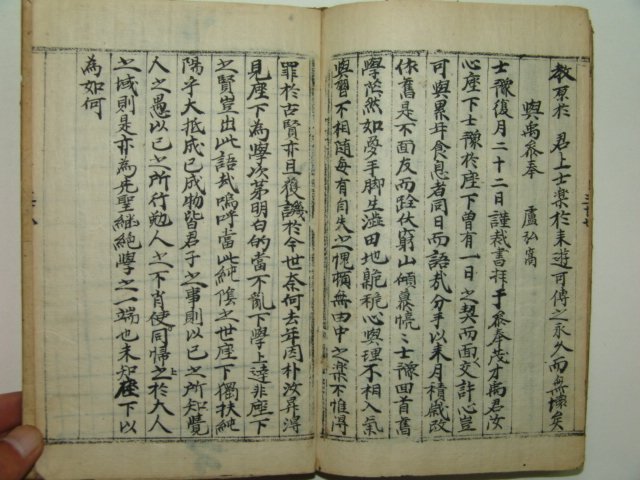 教原於 君上士樂於來遊可傳之永久而無壞矣
與禹參奉 盧弘窩
士豫復月二十二日謹裁書拜于參奉茂才禹君汝
心座下士豫於座下曾有一日之契而面交許心豈
可與累年食息者同日而語哉分手以來月積歲改
依舊是不面友而跧伏窮山傾慕憒憒士豫回首舊
學茫然如夢手脚生澁田地荒穢心與理不相入氣
與習不相隨每有自失之愧頓無由中之樂不惟得
罪於古賢亦且獲譏於今世奈何去年因朴汝昇得
見座下為學次第明白的當不亂下學上達非座下
之賢豈出此語哉嗚呼當此純陰之世座下獨扶純
陽乎大抵成己成物皆君子之事則以己之所知覺
人之愚以己之所行勉人之不肖使同歸之於大人
之域則是亦為先聖継絶學之一端也未知座下以
為如何